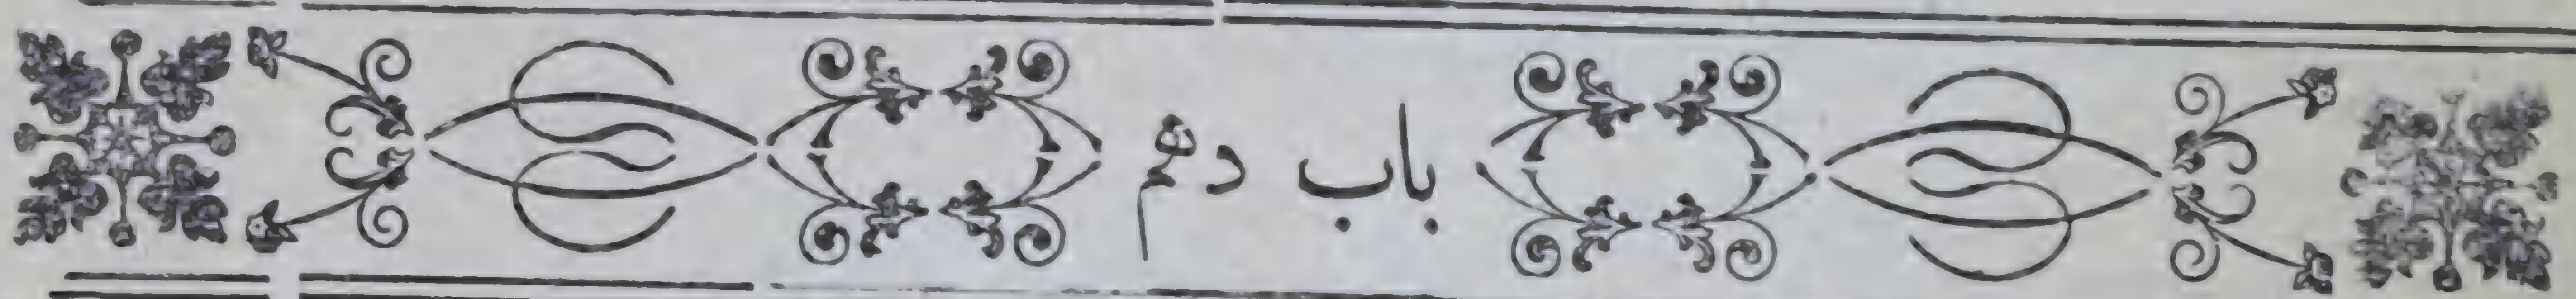 باب دهم